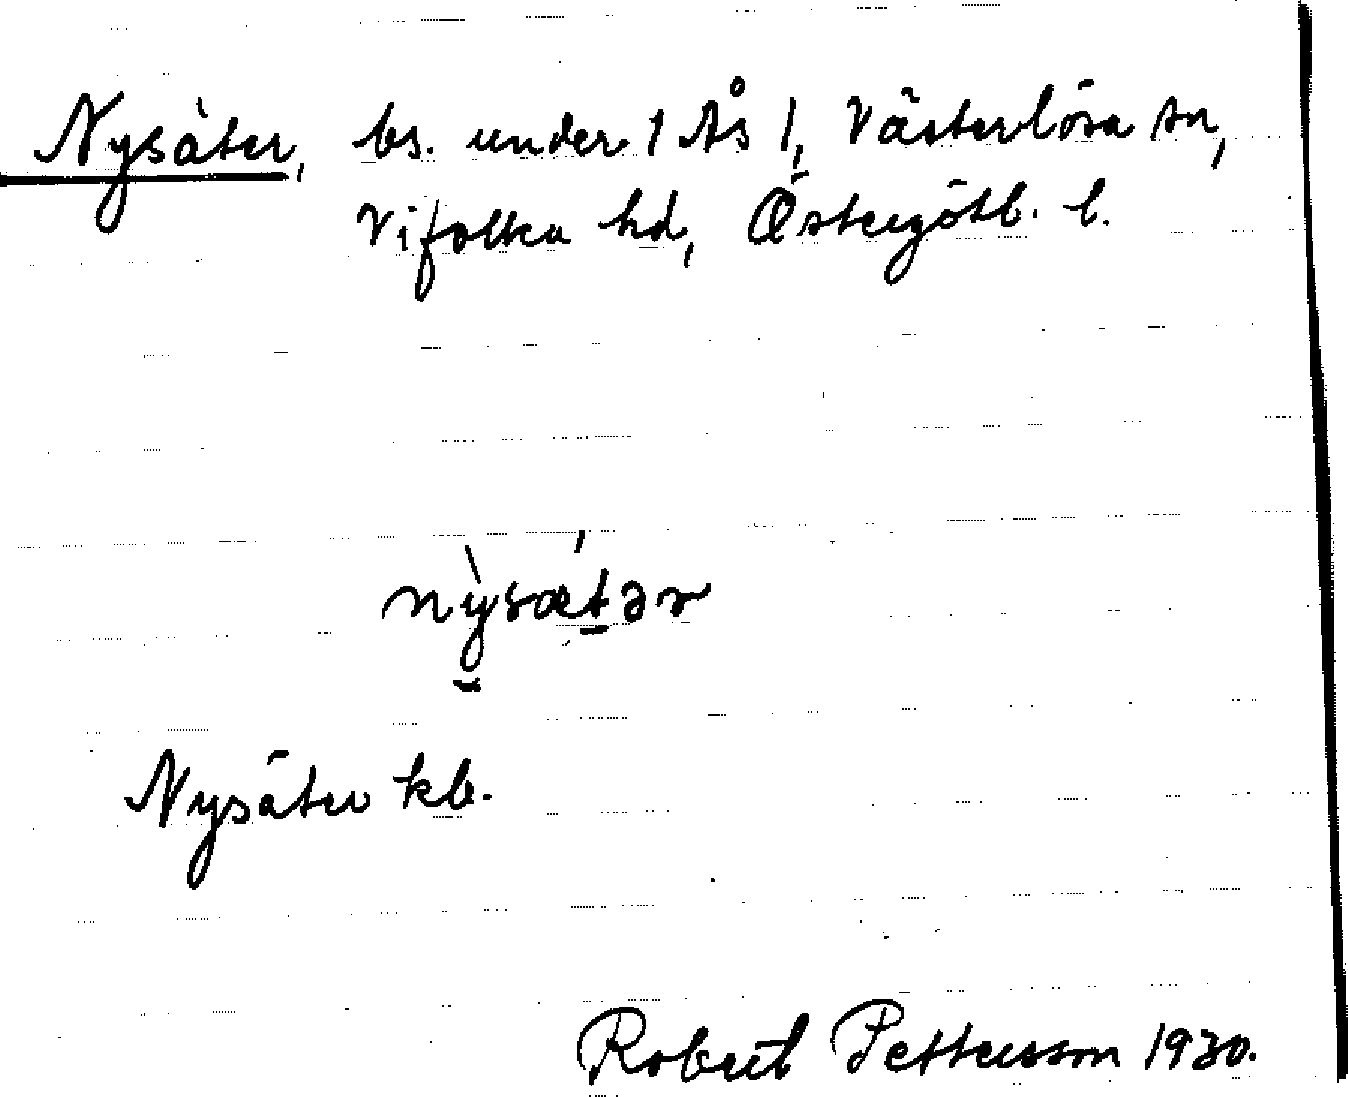 Nysäter, bs. under 1 Ås 1, Västerlösa sn,
Vifolka hd, Östergötl. l.
nỳsætər
Nysäter kb.
Robert Pettersson 1930.